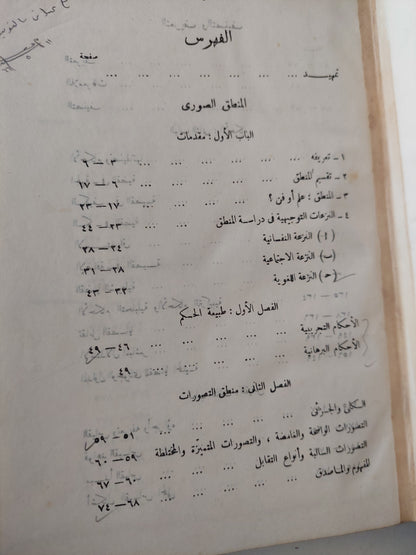 الفهرس
صفحة
تمهيد ... ... ... ... ...
المنطق الصورى
الباب الأول : مقدمات
١ ـ تعريفه ... ... ... ... ... ٣ــ٦
٢ ـ تقسيم المنطق ... ... ... ... ٦ــ١٧
٣ ـ المنطق : علم أو فن ؟ ... ... ... ١٧ــ٢٣
٤ ـ النزعات التوجيهية فى دراسة المنطق ... ... ٢٣ــ٤٤
(ا) النزعة النفسانية ... ... ٢٤ــ٢٨
(ب) النزعة الاجتماعية ... ... ٢٨ــ٣١
(حـ) النزعة اللغوية ... ... ٣٢ــ٤٣
الفصل الأول : طبيعة الحكم
الأحكام التجريبية ... ... ... ... ٤٦ــ٤٩
الأحكام البرهانية ... ... ... ... ٤٩
الفصل الثانى : منطق التصورات
الكلى والجزئى ... ... ... ... ٥١ــ٥٩
التصورات الواضحة والغامضة ، والتصورات المتميزة والمختلطة
التصورات السالبة وأنواع التقابل ... ... ٥٩ــ٦٠
المفهوم والماصدق ... ... ... ٦٠ــ٦٧
٦٨ــ٧٤